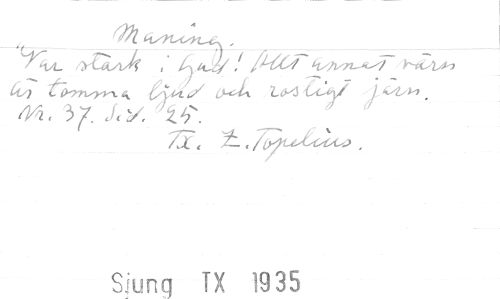 Maning.
"Var stark i Gud! Allt annat värn
är tomma ljud och rostigt järn.
Nr. 37. Sid. 25.
Tx. Z. Topelius.
Sjung TX 1935